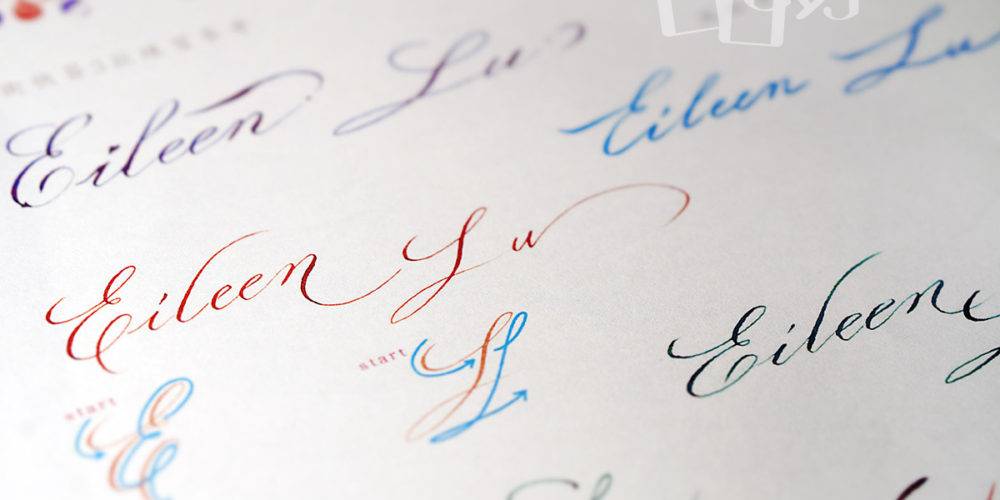 Eileen Lu
Eileen Lu
Eileen Lu
Eileen
start L
start E